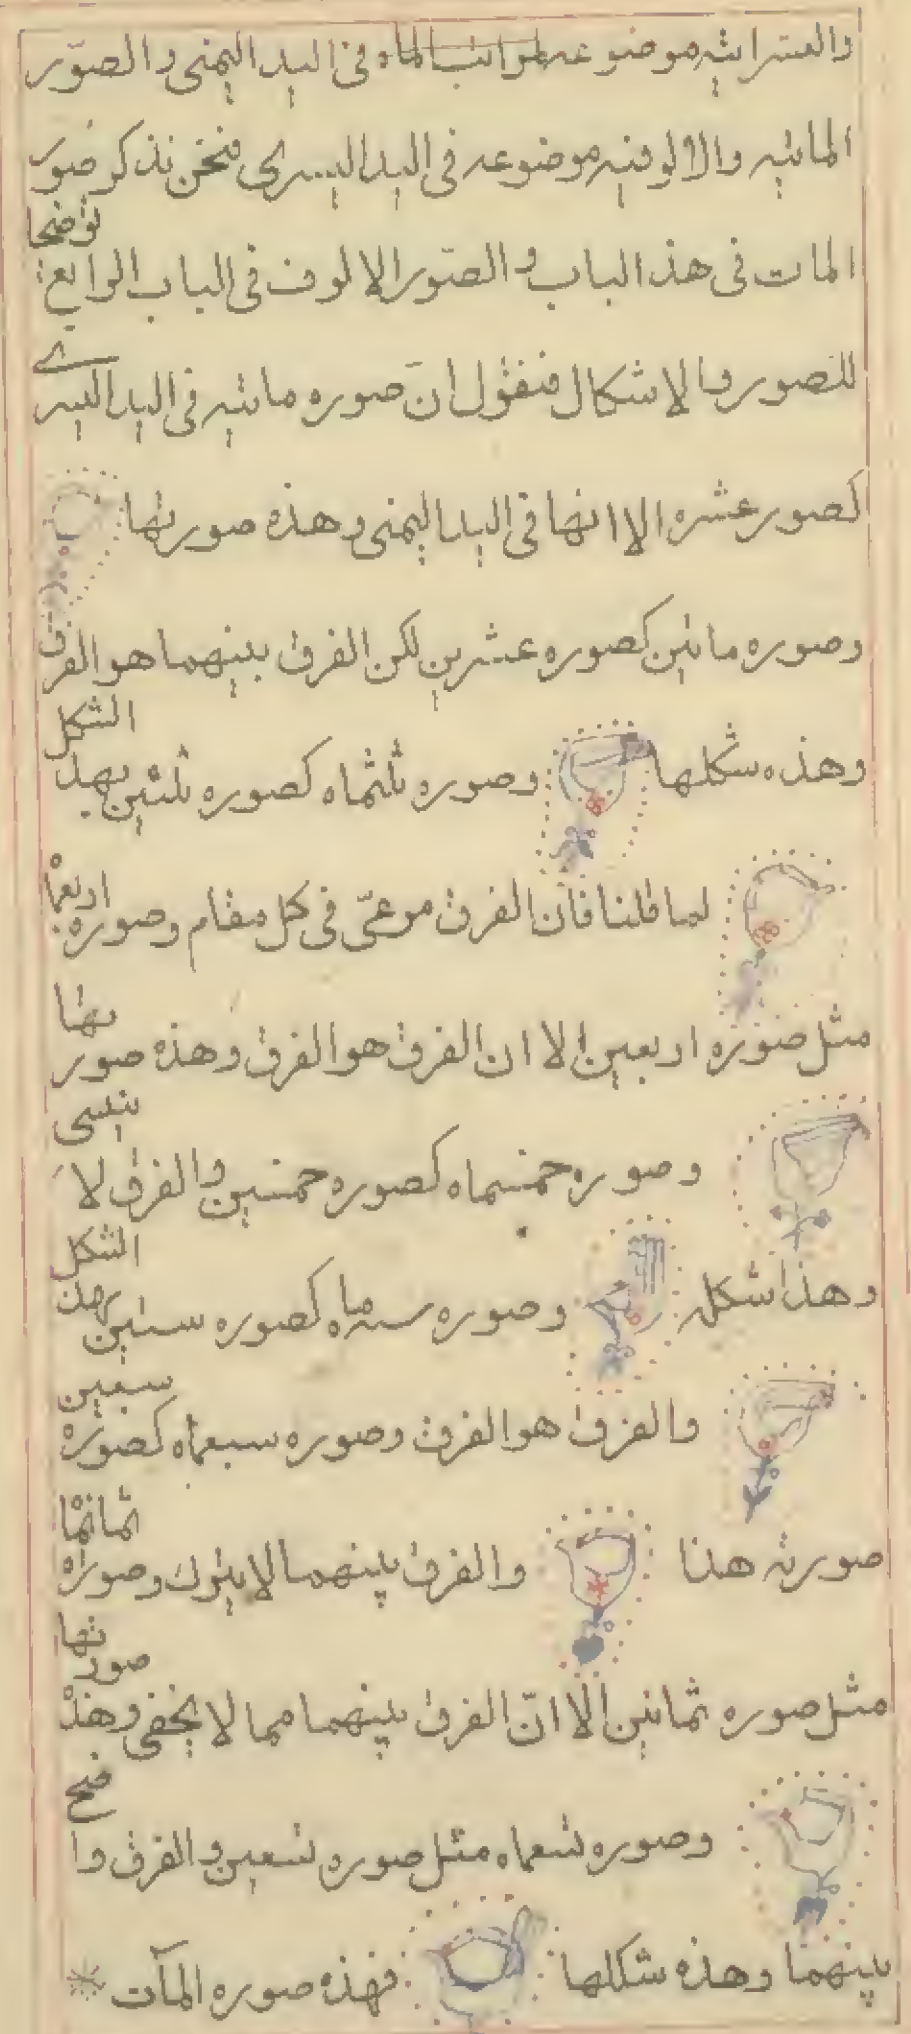 والعشراتيه موضوعه لمراتب الماه فى اليد اليمنى والصوّر
الماتيه والالوفيه موضوعه فى اليد اليسرى فنحن نذكر صور
المات فى هذ الباب و الصوّر الالوف فى الباب الرابع توضحا
للصور والاشكال فنقول ان صوره ماتيه فى اليد اليسرے
كصور عشره الا انها فى اليد اليمنى وهذه صورتها
وصوره ماتين كصوره عشرين لكن الفرق بينهما هو الفرق
وهذه شكلها وصوره ثلثماه كصوره ثلثين بهذ الشكل
لما قلنا فان الفرق مرعىّ فى كل مقام وصوره اربعما
مثل صوره اربعين الا ان الفرق هو الفرق وهذه صورتها
وصوره خمسماه كصوره خمسين والفرق لا ينسى
وهذا شكله وصوره ستماه كصوره ستين بهذ الشكل
والفرق هو الفرق وصوره سبعماه كصوره سبعين
صورته هذا والفرق بينهما لا يترك وصوراه ثمانما
مثل صوره ثمانين الا انّ الفرق بينهما مما لا يخفى وهذه صورتها
وصوره تسعماه مثل صوره تسعين والفرق واضح
بينهما وهذه شكلها فهذه صوره المآت